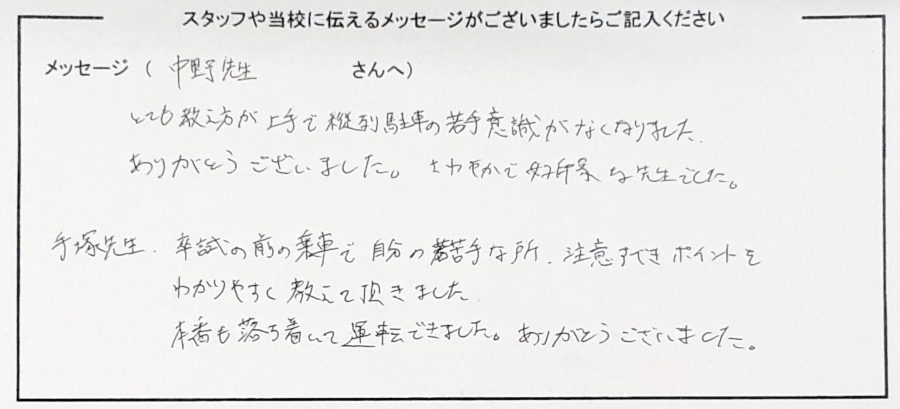 スタッフや当校に伝えるメッセージがございましたらご記入ください
メッセージ ( 中野先生 さんへ)
とても教え方が上手で縦列駐車の苦手意識がなくなりました.
ありがとうございました。 さわやかで好印象な先生でした。
手塚先生. 卒試の前の乗車で自分の苦手な所. 注意すべきポイントを
わかりやすく教えて頂きました
本番も落ち着いて運転できました。ありがとうございました。